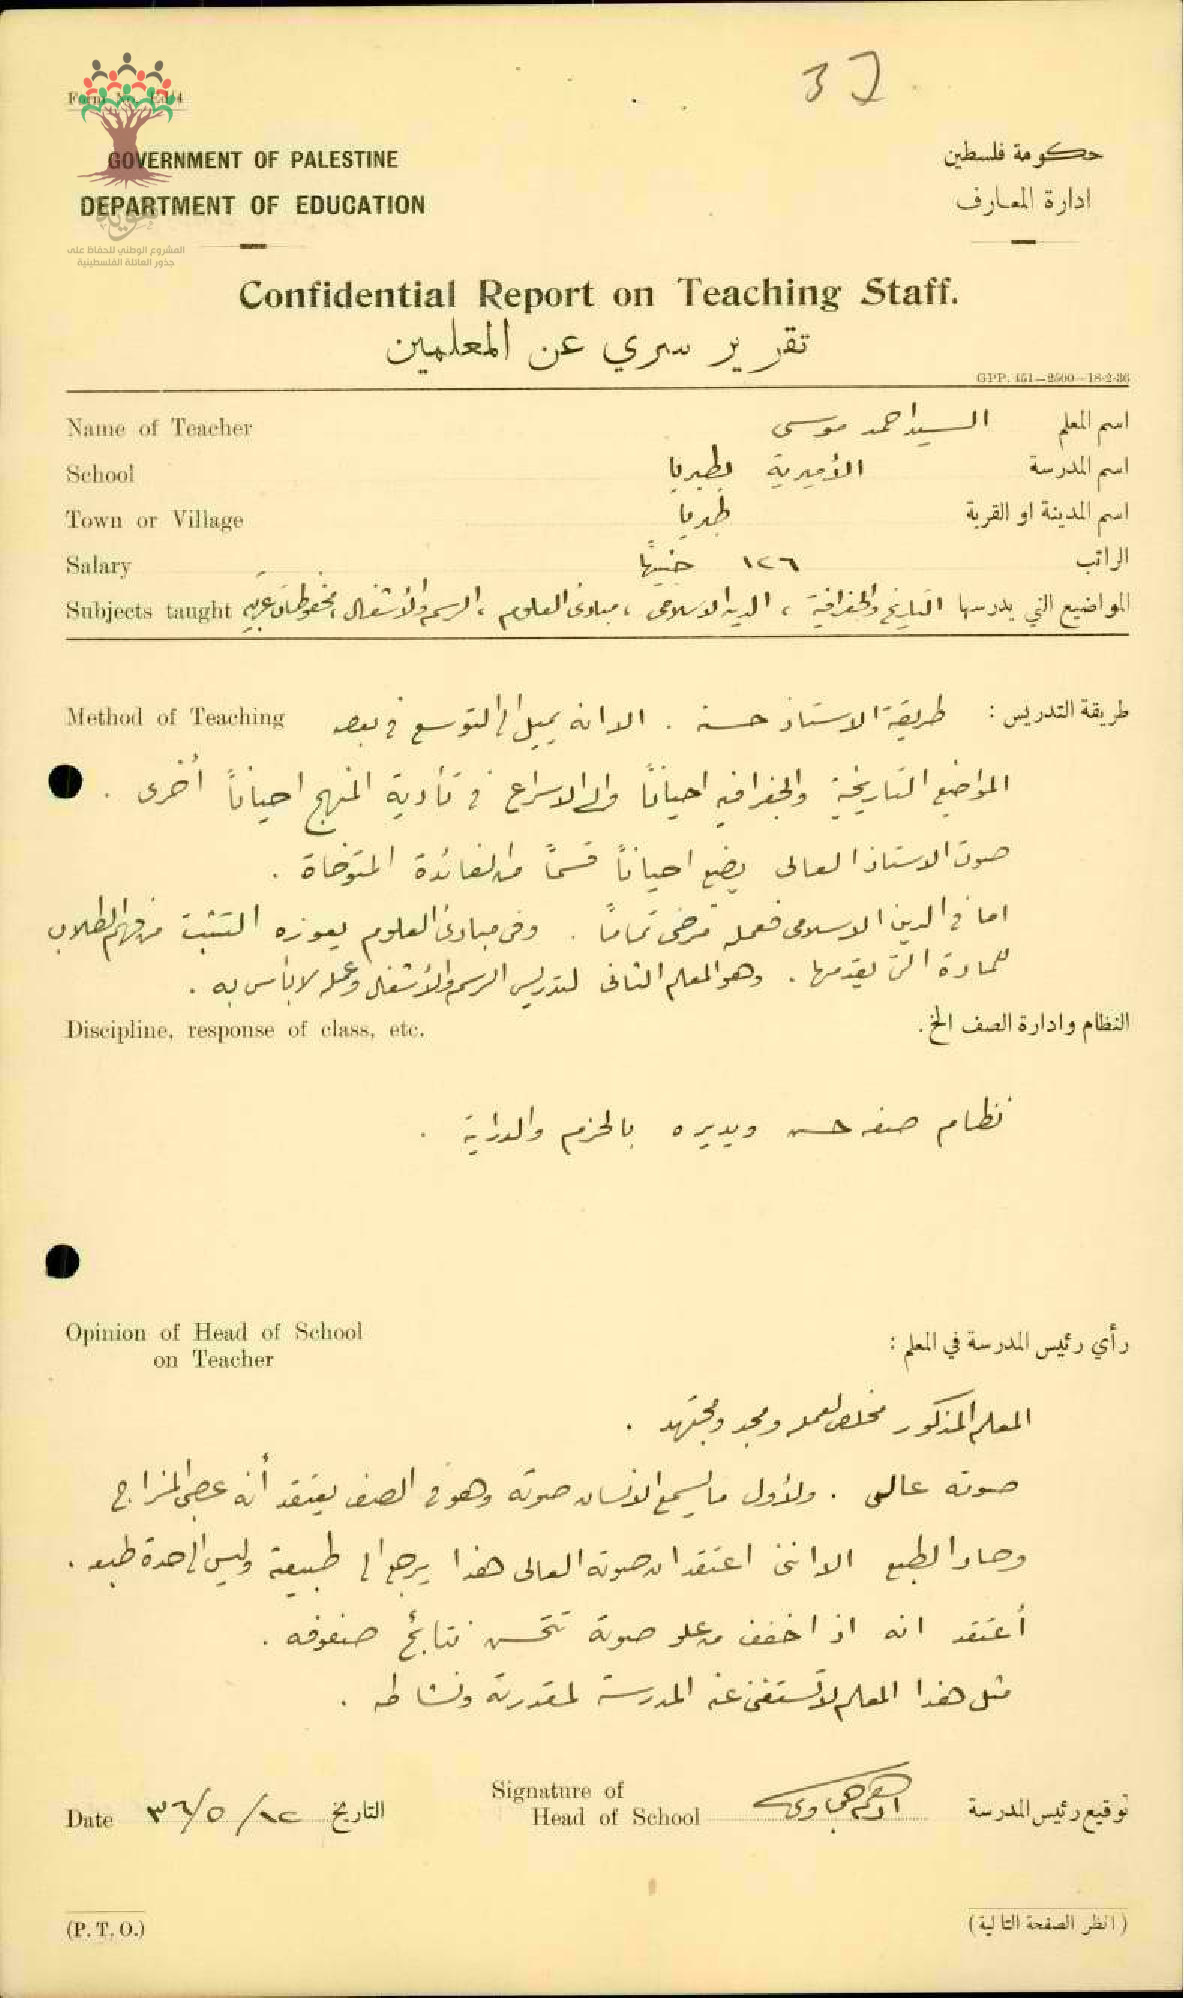 37
Form No. Ed/4
GOVERNMENT OF PALESTINE
حكومة فلسطين
DEPARTMENT OF EDUCATION
ادارة المعارف
المشروع الوطني للحفاظ على
جذور العائلة الفلسطينية
Confidential Report on Teaching Staff.
تقرير سري عن المعلمين
GPP. 451—2500—18-2-36
Name of Teacher السيد احمد موسى اسم المعلم
School الأميرية بطبريا اسم المدرسة
Town or Village طبريا اسم المدينة او القرية
Salary ١٢٦ جنيهًا الراتب
Subjects taught المواضيع التي يدرسها التاريخ والجغرافية ، الدين الاسلامي ، مبادئ العلوم ، الرسم والأشغال ، محفوظات عربية
Method of Teaching طريقة التدريس : طريقة الاستاذ حسنة . الا انه يميل الى التوسع في بعض
المواضيع التاريخية والجغرافيه احياناً والى الاسراع في تأدية المنهج احياناً أخرى .
صوت الاستاذ العالى يضيع احياناً قسمًا من الفائدة المتوخاة .
اما في الدين الاسلامى فعمله مرضى تمامًا . وفى مبادئ العلوم يعوزه التثبت من فهم الطلاب
للمادة التى يقدمها . وهو المعلم الثانى لتدريس الرسم والأشغال وعمله لا بأس به .
Discipline, response of class, etc. النظام وادارة الصف الخ.
نظام صفه حسن ويديره بالحزم والدراية .
Opinion of Head of School
on Teacher
رأي رئيس المدرسة في المعلم :
المعلم المذكور مخلص لعمله ومجد ومجتهد .
صوته عالى . ولأول ما يسمع الانسان صوته وهو في الصف يعتقد أنه عصبى المزاج
وحاد الطبع الا اننى اعتقد ان صوته العالى هذا يرجع الى طبيعة وليس الى حدة طبع .
أعتقد انه اذا خفف من علو صوته تتحسن نتائج صفوفه .
مثل هذا المعلم لا تستغنى عنه المدرسة لمقدرته ونشاطه .
Signature of
Date ٣٦/٥/١٢ التاريخ Head of School توقيع رئيس المدرسة
(P. T. O.) (انظر الصفحة التالية)